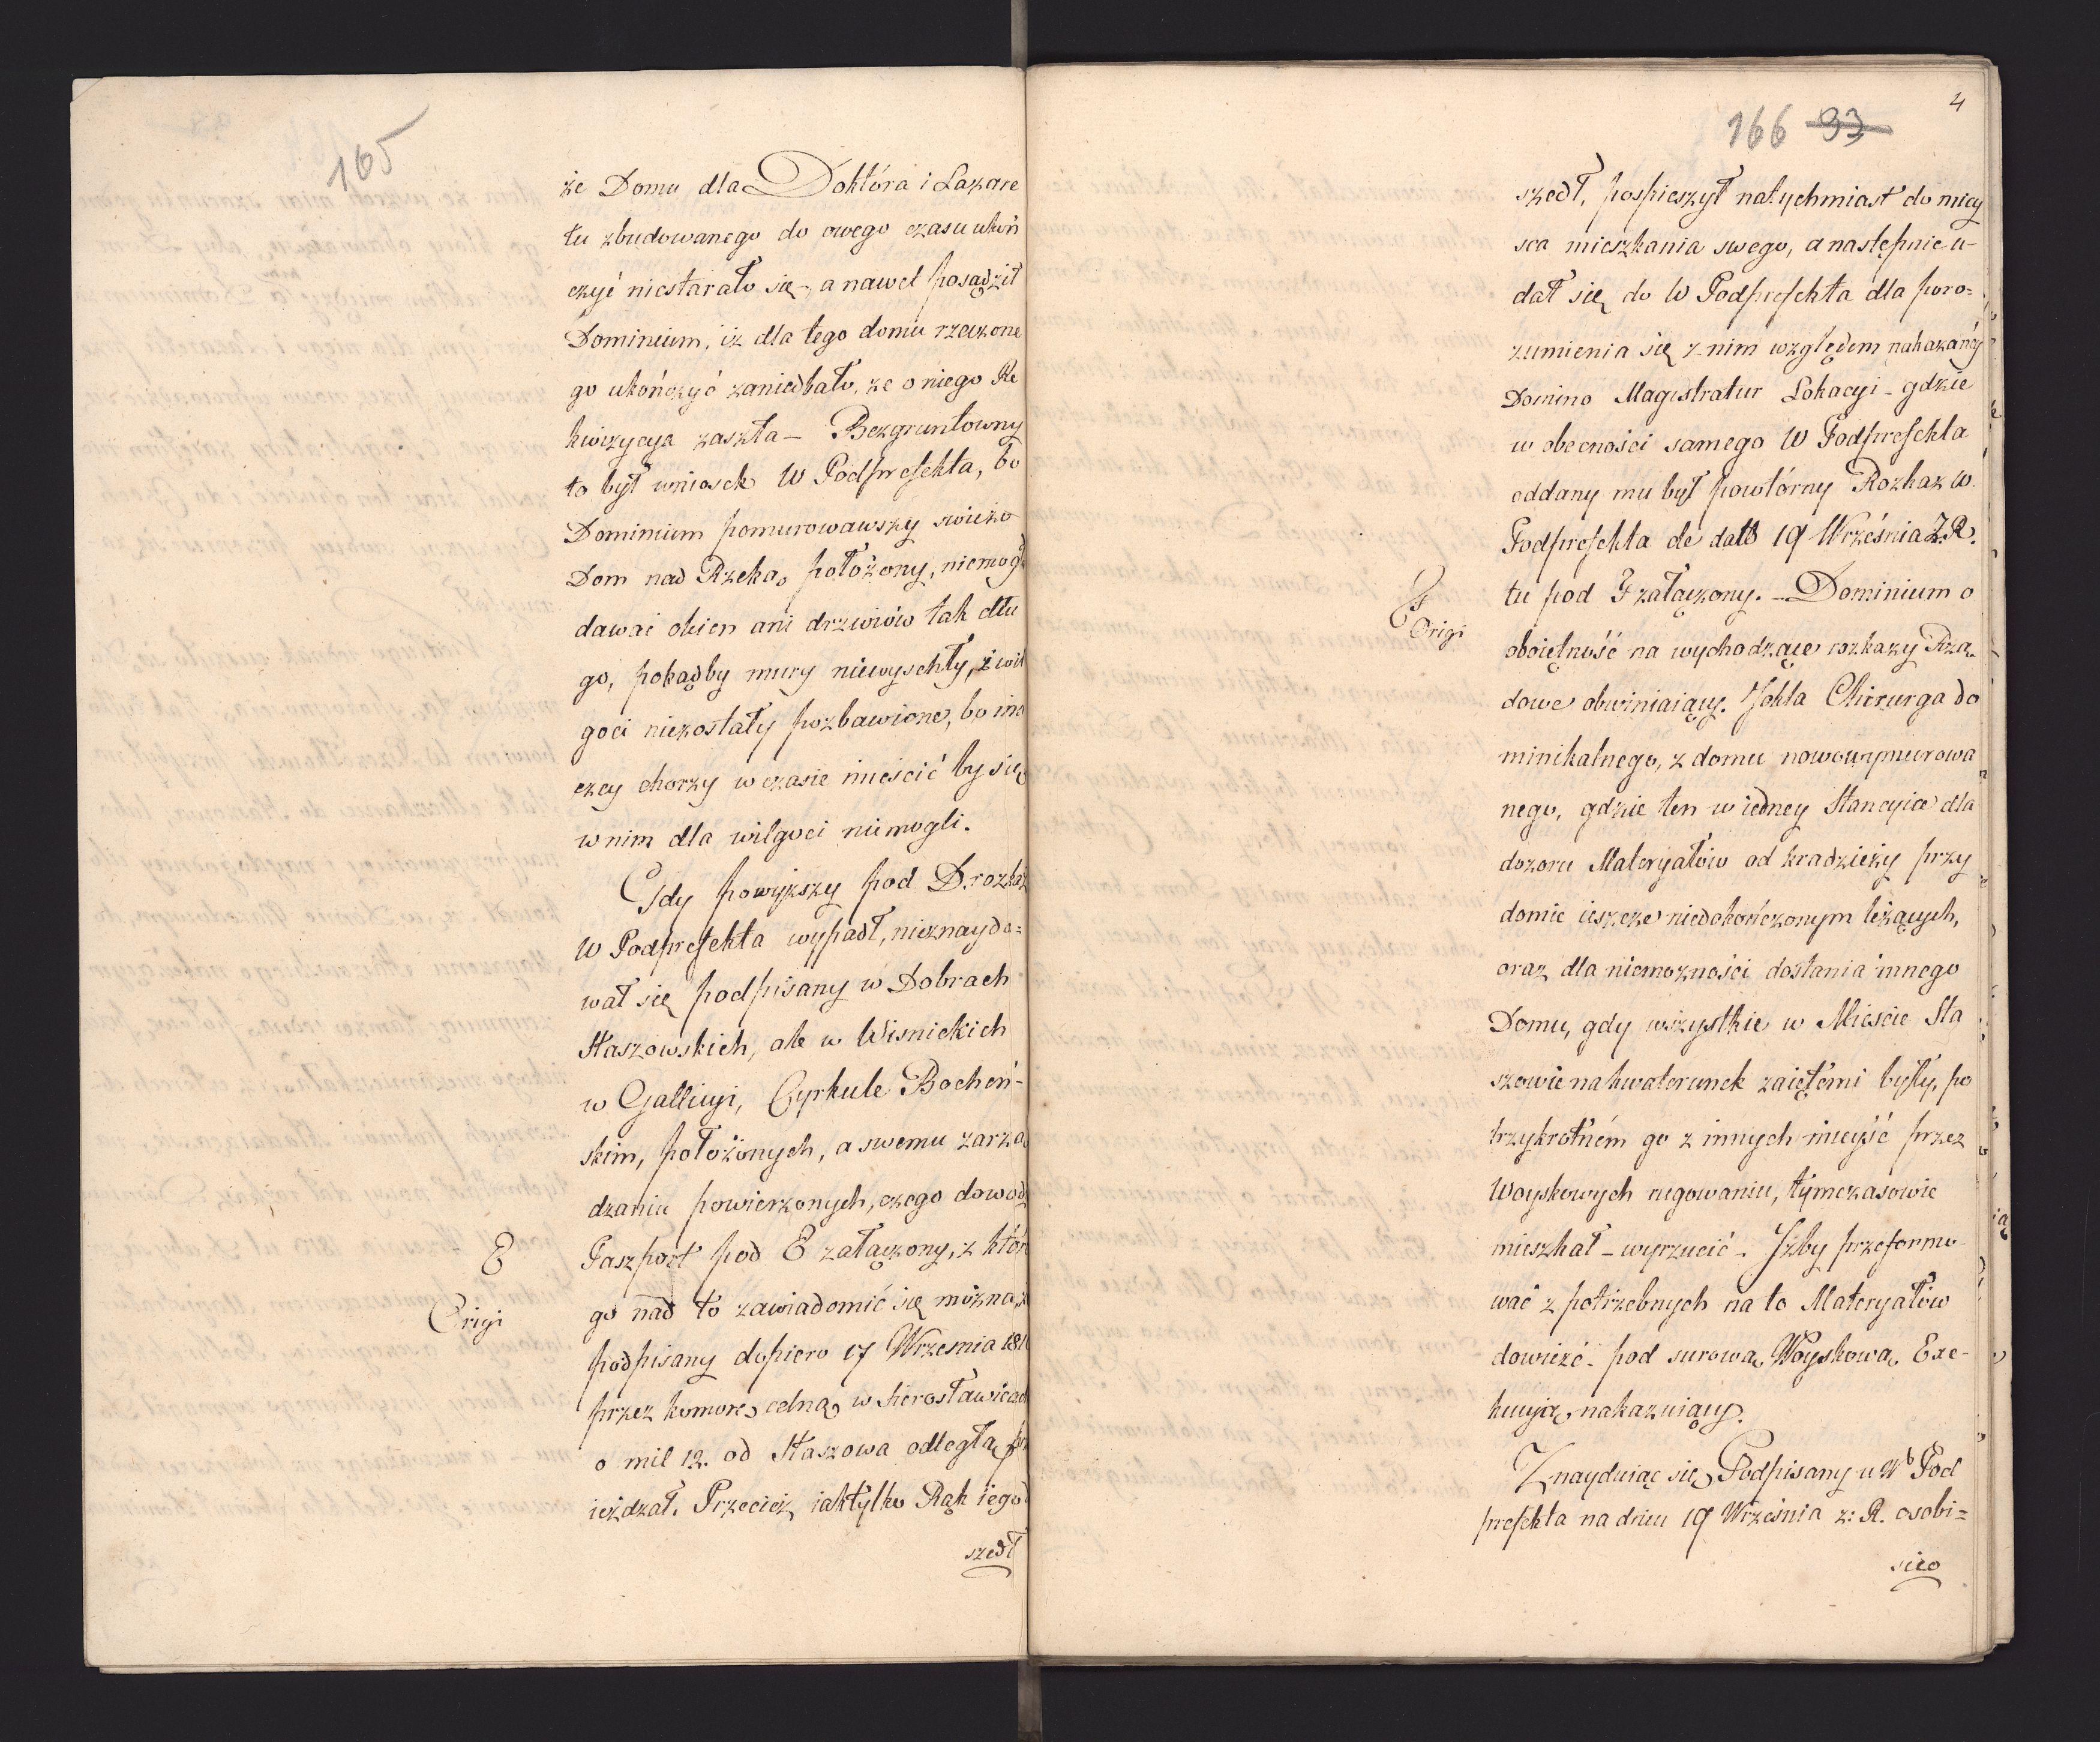 165
że Domu dla Doktóra i Lazare
tu zbudowanego do owego czasu ukoń
czyć niestarało się, a nawet posądził
Dominium, iż dla tego domu rzeczone
go ukończyć zaniedbało, że o niego Re
kwizycya zaszła – Bezgruntowny
to był wniosek W Podprefekta, bo
Dominium pomurowawszy swieżo
Dom nad Rzeką położony, niemogł
dawać okien ani drzwiów tak dłu
go, pokądby mury niewyschły, i wil
goci niezostały pozbawione, bo ina
czey chorzy w czasie mieścić by się
w nim dla wilgoci niemogli.
Gdy powyższy pod D. rozkaz
W Podprefekta wypadł, nieznaydo=
wał się podpisany w Dobrach
Staszowskich, ale w Wisnickich
w Gallicyi, Cyrkule Bocheń-
skim, położonych, a swemu zarzą
dzaniu powierzonych, czego dowodz
E
Paszport pod E załączony, z któr
Origi
go nad to zawiadomić się można, ż
podpisany dopiero 17 Wrzesnia 181
przez komorę celną w Sierosławicach
o mil 12. od Staszowa odległą prz
ieżdzał. Przecież iak tylko Rąk iego d
szedł
4
166 33
szedł, pospieszył natychmiast do miey
sca mieszkania swego, a następnie u-
dał się do W Podprefekta dla poro=
zumienia się z nim względem nakazanéy
Domino Magistratur Lokacyi – gdzie
w obecności samego W Podprefekta
oddany mu był powtórny Rozkaz W.
Podprefekta de dato 19 Września Z.R.
F
tu pod F załączony. – Dominium o
Origi
oboiętność na wychodzące rozkazy Rzą
dowe obwiniaiący. Jokla Chirurga do
minikalnego, z domu nowowymurowa
nego, gdzie ten w iedney Stancyice dla
dozoru Materyałów od kradzieży przy
domie ieszcze niedokończonym leżących,
oraz dla niemożności dostania innego
Domu, gdy wszystkie w Mieście Sta
szowie na kwaterunek zaiętémi były, po
trzykrotném go z innych mieyść przez
Woyskowych rugowaniu, tymczasowie
mieszkał – wyrzucić – Izby przeformo
wać z potrzebnych na to Materyałów
dowieźć – pod surową Woyskową Exe-
kucyą nakazuiący.
Znayduiąc się Podpisany u Wo Pod
prefekta na dniu 19 Września z: R. osobi=
scie